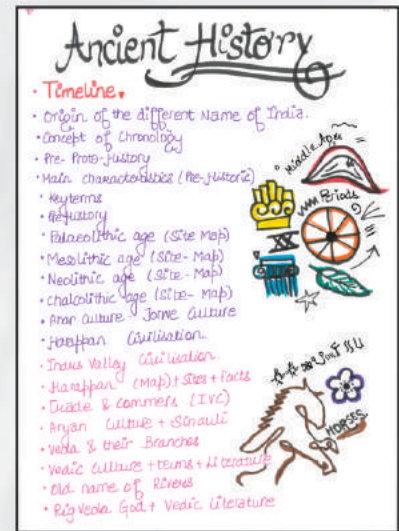 Ancient History
• Timeline.
• Origin of the different Name of India.
• Concept of Chronology
• Pre-Proto-History
• Main characteristics (Pre-Historic)
• Keyterms
• Prehistory
• Palaeolithic age (Site Map)
• Mesolithic age (Site-Map)
• Neolithic age (Site-Map)
• Chalcolithic age (Site-Map)
• Ahar Culture Jorwe Culture
• Harappan Civilisation
• Indus Valley Civilisation
• Harappan (Map)+Sites+Facts
• Trade & Commers (IVC)
• Aryan Culture + Sinauli
• Veda & their Branches
• Vedic Culture+terms+Literature
• Old name of Rivers
• Rig Veda God + Vedic Literature
Middle Ages
Periods
XX
HORSES